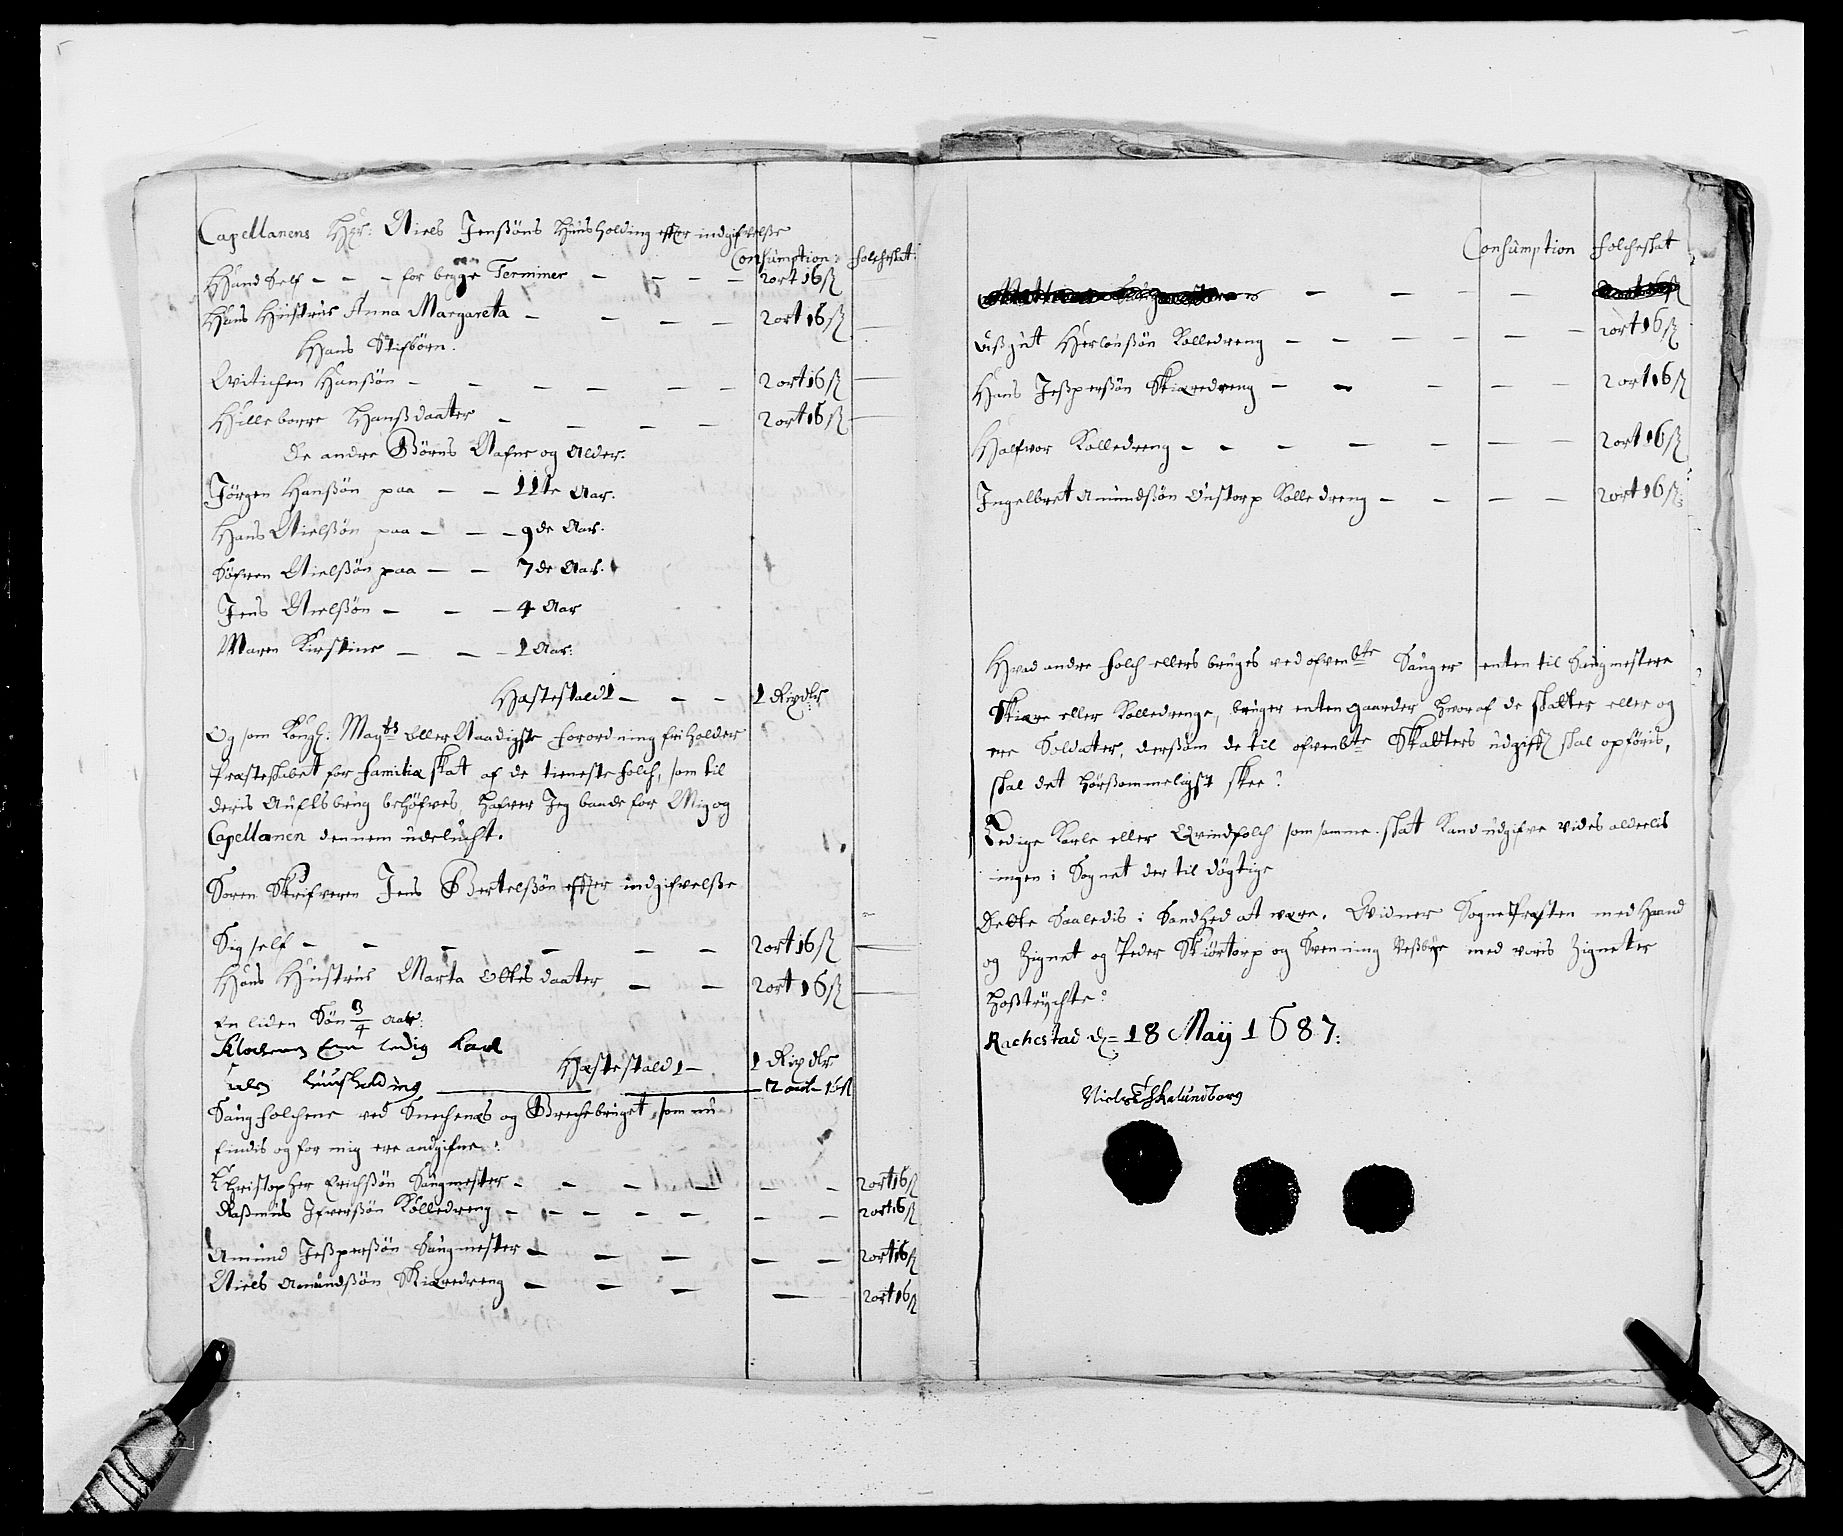 Capellanens Her: Niels Jenßöns Huusholding effter indgifvelse
Consumption: Folcheskat:
Hand Self - - - for begge Terminer - - - - 2 ort 16 ß
Hans Hustrue Anna Margareta - - - - 2 ort 16 ß
Hans Stifbörn.
Witichen Hansßön - - - - - - 2 ort 16 ß
Hilleborre Hansßdaater - - - - 2 ort 16 ß
De andre Börns Nafne og Alder.
Jörgen Hansßön paa - - 11te Aar.
Hans Nielsßön paa - - - 9de Aar.
Söfren Nielsßön paa - - 7de Aar.
Jens Nielsßön - - - 4 Aar
Maren Kirstine - - - 1 Aar.
Hæstestald 1 - - - 1 Rixdlr
Og som Kongl: Mayts Aller Naadigste forordning friholder
Præsteskabet for familie skat af de tienestefolch, som til
deris Aufls brug behöfves, hafver Jeg baade for Mig og
Capellanen dennem udelucht.
Soren Skrifveren Jens Bertelsßön effter indgifvelse
Sig self - - - - - - 2 ort 16 ß
Hans Hustrue Marta Olles daater - - 2 ort 16 ß
En liden Sön 3/4 Aar.
Klocheren Een ledig Karl
Hæstestald 1 - 1 Rixdlr
uden huusholding 2 ort 16 ß
Saug folchene ved Snechenes og Brechebruget, som nu
findis og for mig ere andgifne:
Christopher Erichsßön Saugmester - - - - - - 2 ort 16 ß
Rasmus Ifversßön Kolledreng - - - - - - - 2 ort 16 ß
Amund Jesßpersßön Saugmester - - - - - 2 ort 16 ß
Niels Amundsßön Skiæredreng - - - - 2 ort 16 ß
Consumption Folcheskat
Hersloußön Kolledreng - - - - - - 2 ort 16 ß
Hans Jesßpersßön Skiæredreng - - - - - 2 ort 16 ß
Halfvor Kolledreng - - - - - - - 2 ort 16 ß
Ingelbret Amundsßön Onstorp Kolledreng - - - - 2 ort 16 ß:
Hvad andre folch ellers bruges ved ofvenbte Sauger enten til Saugmestere
Skiære eller Kolledrenge, bruger enten gaarder hvoraf de skatter eller og
ere Soldater, dersom de til ofvenbte Skatters udgifft skal opföris,
skal det hörsommeligst skee:
Ledige Karle eller Qvindfolch som samme skat kand udgifve vides alderlis
ingen i Sognet der til dögtige
Dette Saaledis i Sandhed at være. Vidner SognePræsten med Haand
og Zignet og Peder Skiörtorp og Svenning Nesbye med voris Zigneter
hostrychte:
Rachestad d= 18 Maij 1687:
Niels JSKalundborg